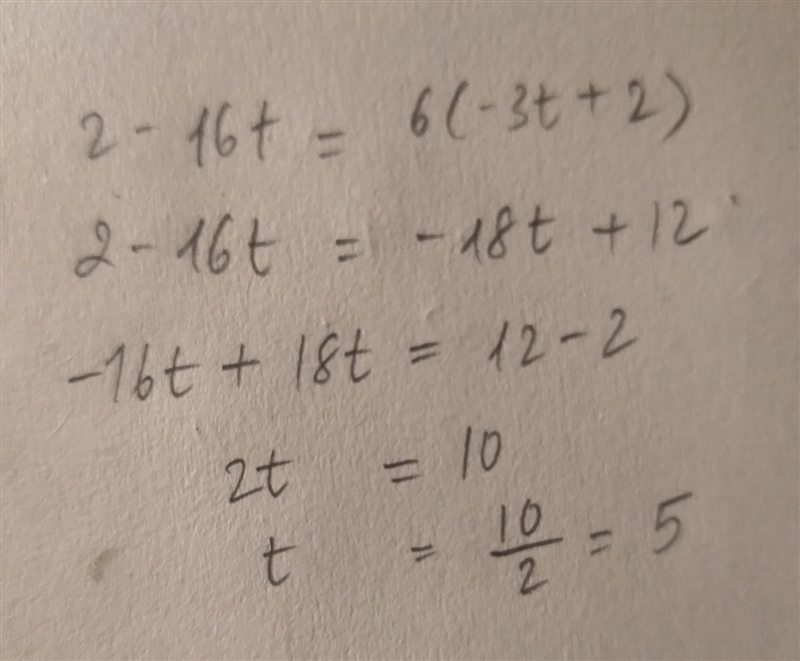 2 - 16t = 6(-3t + 2)
2 - 16t = -18t + 12
-16t + 18t = 12 - 2
2t = 10
t = 10/2 = 5